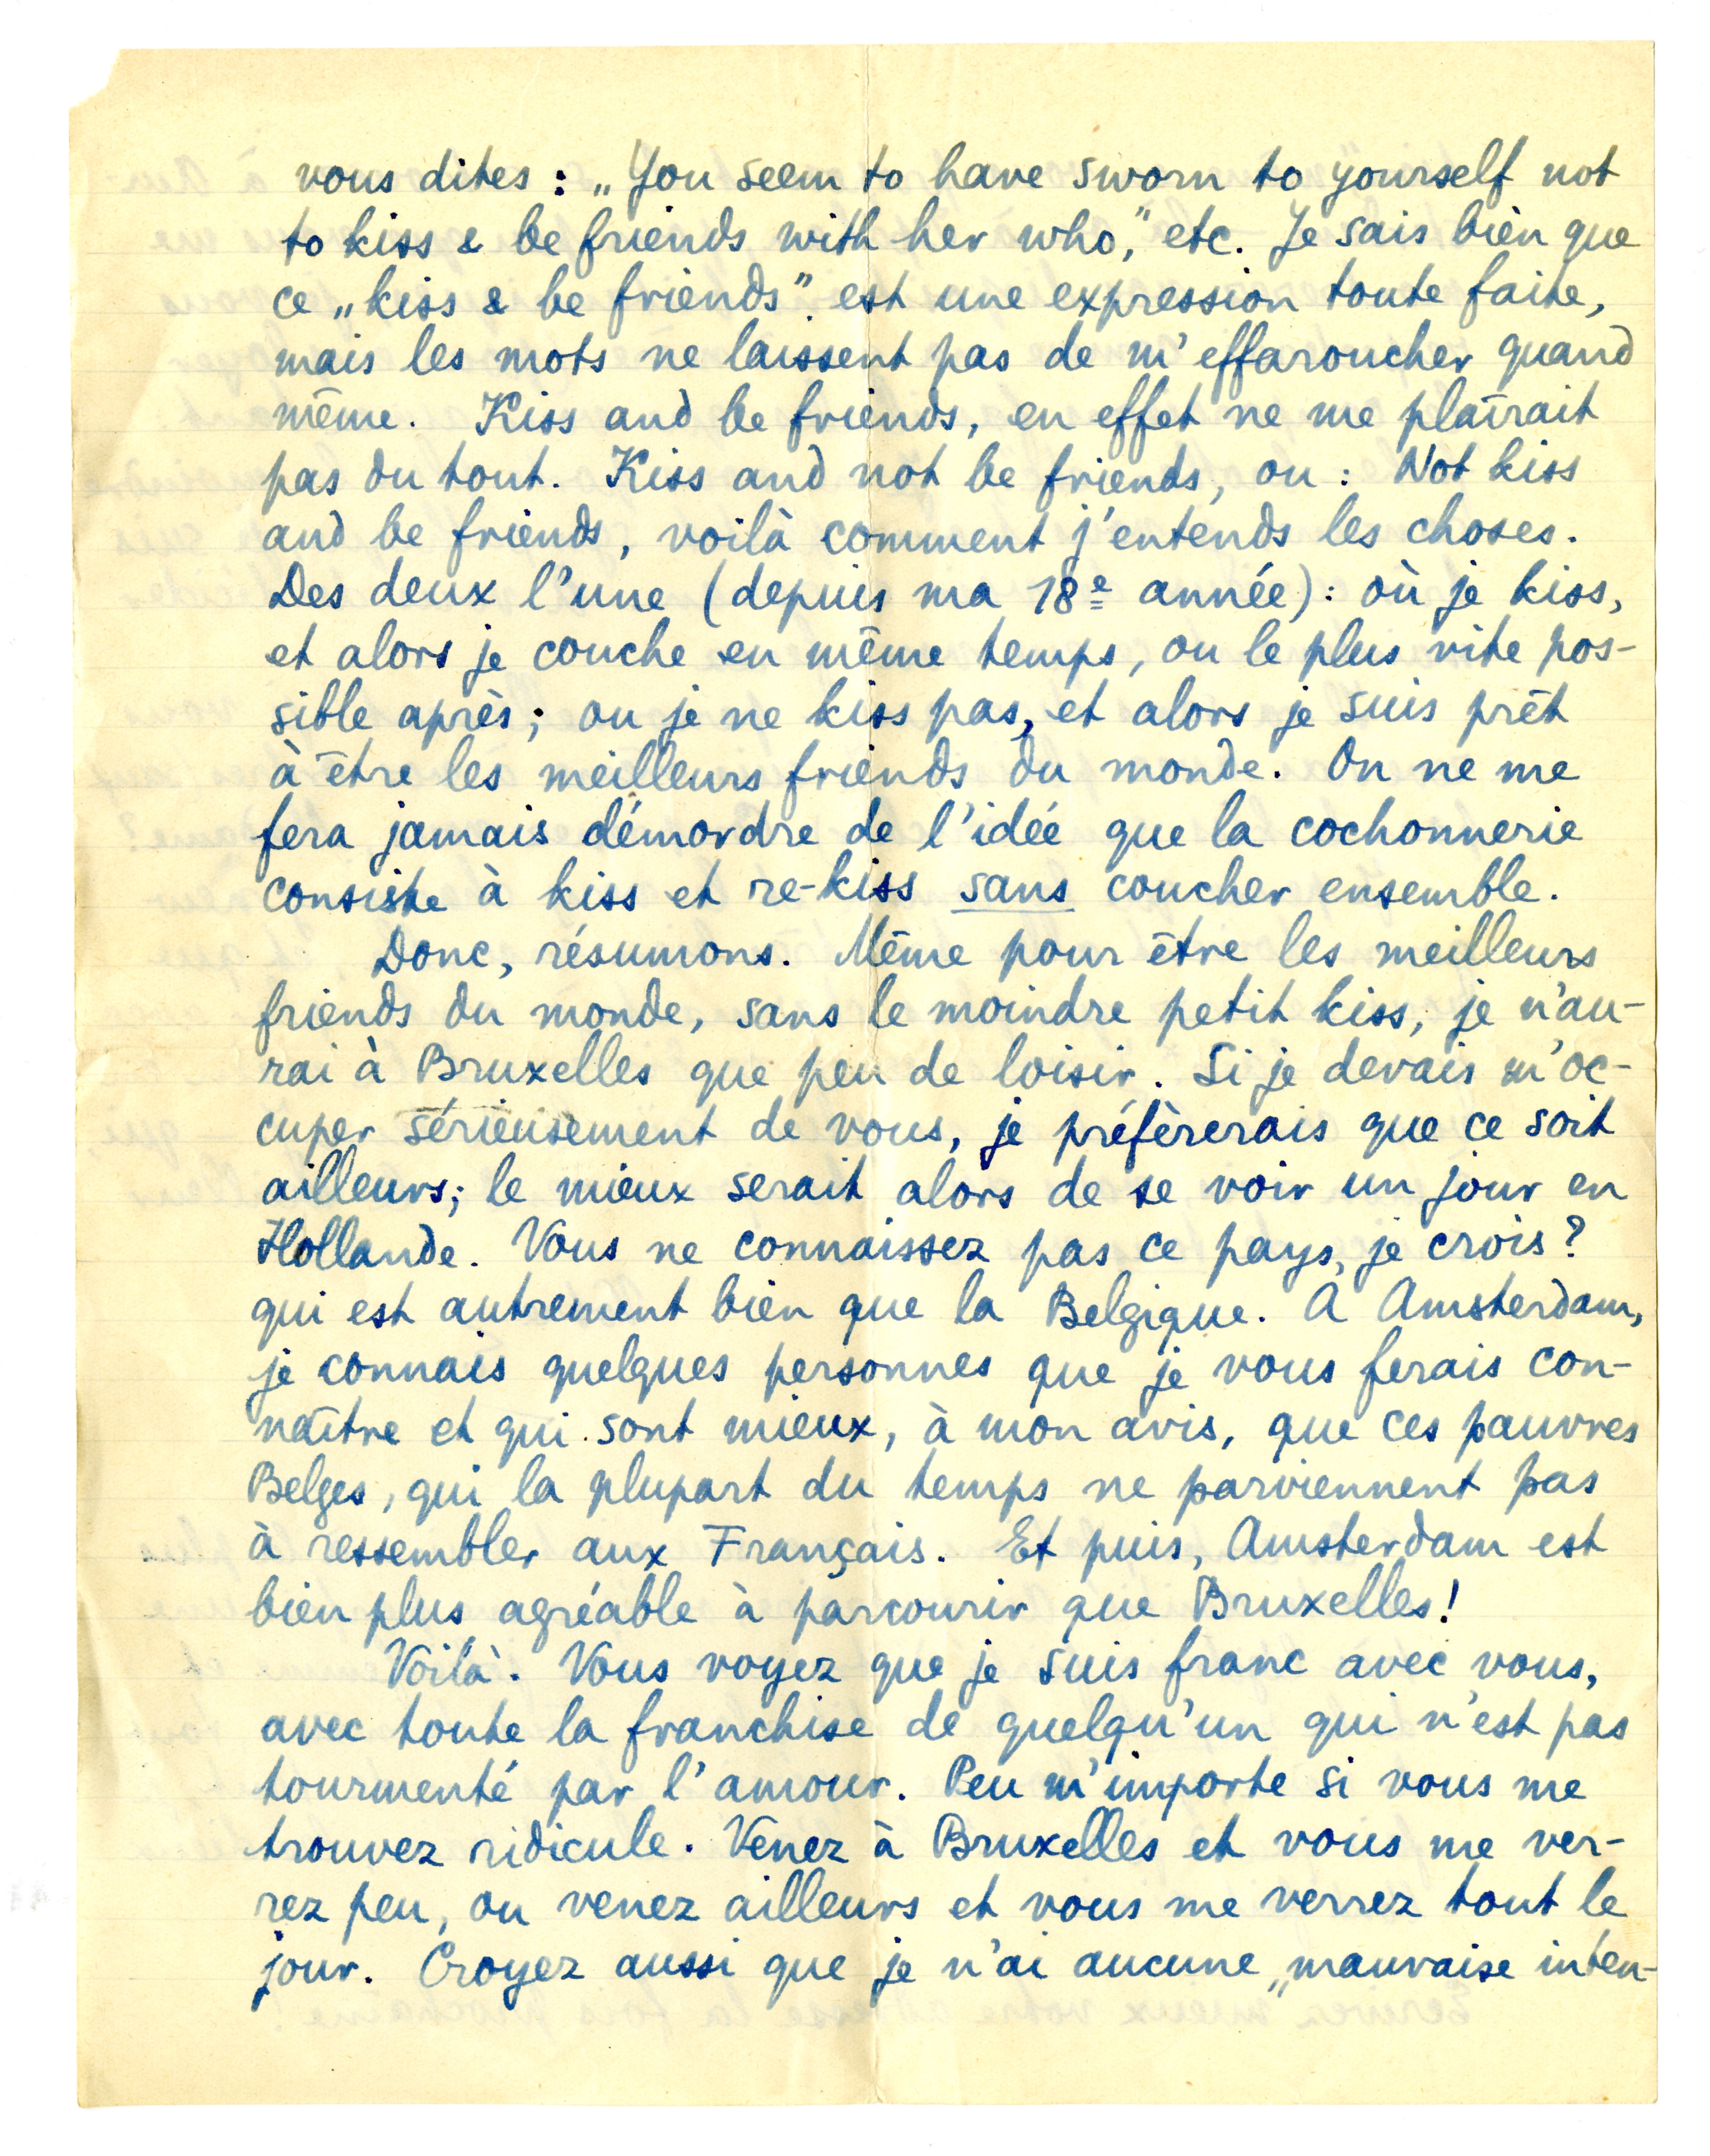 vous dites : „You seem to have sworn to yourself not
to kiss & be friends with her who," etc. Je sais bien que
ce „kiss & be friends" est une expression toute faite,
mais les mots ne laissent pas de m'effaroucher quand
même. Kiss and be friends, en effet ne me plaîrait
pas du tout. Kiss and not be friends, ou : Not kiss
and be friends, voilà comment j'entends les choses.
Des deux l'une (depuis ma 18e année): où je kiss,
et alors je couche en même temps, ou le plus vite pos-
sible après; ou je ne kiss pas, et alors je suis prêt
à être les meilleurs friends du monde. On ne me
fera jamais démordre de l'idée que la cochonnerie
consiste à kiss et re-kiss sans coucher ensemble.
Donc, résumons. Même pour être les meilleurs
friends du monde, sans le moindre petit kiss, je n'au-
rai à Bruxelles que peu de loisir. Si je devais m'oc-
cuper sérieusement de vous, je préfèrerais que ce soit
ailleurs; le mieux serait alors de se voir un jour en
Hollande. Vous ne connaissez pas ce pays, je crois?
qui est autrement bien que la Belgique. A Amsterdam,
je connais quelques personnes que je vous ferais con-
naître et qui sont mieux, à mon avis, que ces pauvres
Belges, qui la plupart du temps ne parviennent pas
à ressembler aux Français. Et puis, Amsterdam est
bien plus agréable à parcourir que Bruxelles!
Voilà. Vous voyez que je suis franc avec vous,
avec toute la franchise de quelqu'un qui n'est pas
tourmenté par l'amour. Peu m'importe si vous me
trouvez ridicule. Venez à Bruxelles et vous me ver-
rez peu, ou venez ailleurs et vous me verrez tout le
jour. Croyez aussi que je n'ai aucune „mauvaise inten-